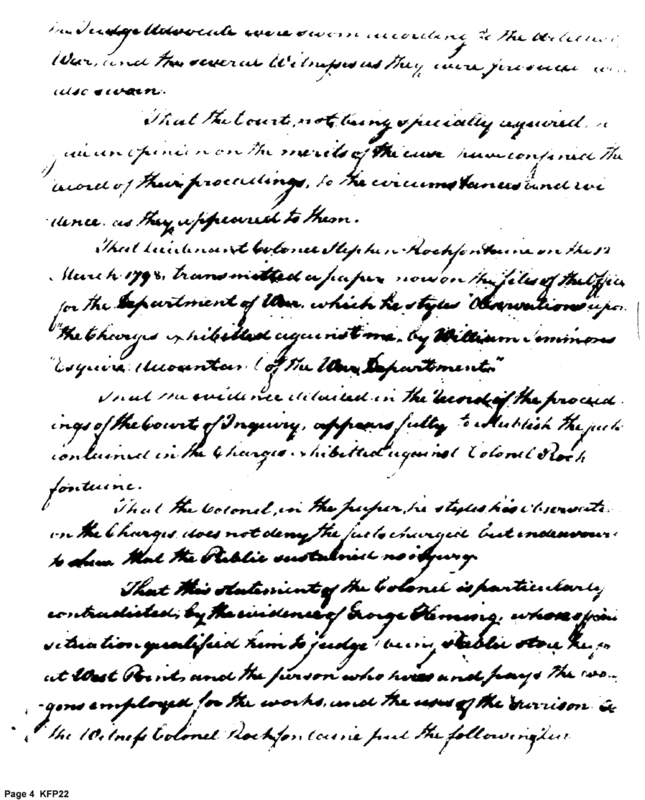 Judge Advocate were sworn according to the Articles
War, and the several Witnesses as they were produced
also sworn.
That the Court, not being specially required
give an opinion on the merits of the case have confined the
record of their proceedings, to the circumstances and evi
dence as they appeared to them.
That Lieutenant Colonel Stephen Rochfontaine on the 12
March 1798, transmitted a paper now on the files of the Office
for the Department of War, which he styles "Observations upon
"the Charges exhibited against me, by William Simmons
"Esquire Accountant of the War Department."
That the evidence detailed in the record of the proceed
ings of the Court of Inquiry, appears fully to establish the facts
contained in the Charges exhibited against Colonel Roch
fontaine.
That the Colonel, in the paper, he styles his observati
on the Charges, does not deny the facts charged but endeavours
to shew that the Public sustained no injury.
That this statement of the Colonel is particularly
contradicted, by the evidence of George Fleming, whose
situation qualified him to judge being Public store
at West Point, and the person who hires and pays the wa
gons employed for the works, and the uses of the Garrison
the Witness Colonel Rochfontaine put the following
Page 4 KFP22